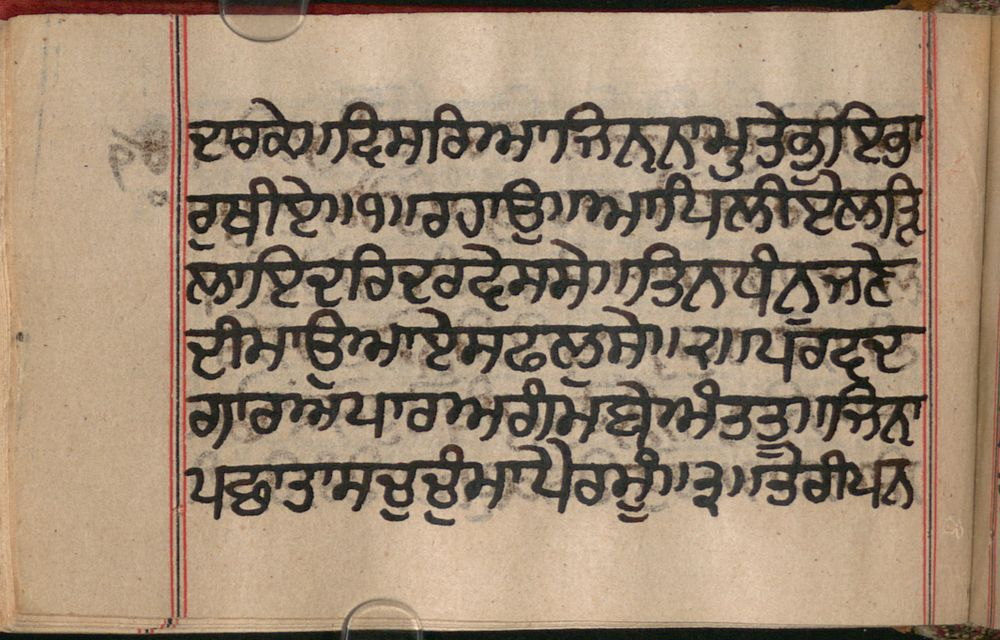 ਦਰਕੇ॥ਵਿਸਰਿਆਜਿਨਨਾਮੁਤੇਭੁਇਭਾ
ਰੁਥੀਏ॥੧॥ਰਹਾਉ॥ਆਪਿਲੀਏਲੜਿ
ਲਾਇਦਰਿਦਰਵੇਸਸੇ॥ਤਿਨਧੰਨੁਜਣੇ
ਦੀਮਾਉਆਏਸਫਲੁਸੇ॥੨॥ਪਰਵਦ
ਗਾਰਅਪਾਰਅਗੰਮਬੇਅੰਤਤੂ॥ਜਿਨਾ
ਪਛਾਤਾਸਚੁਚੁੰਮਾਪੈਰਮੂੰ॥੩॥ਤੇਰੀਪਨ